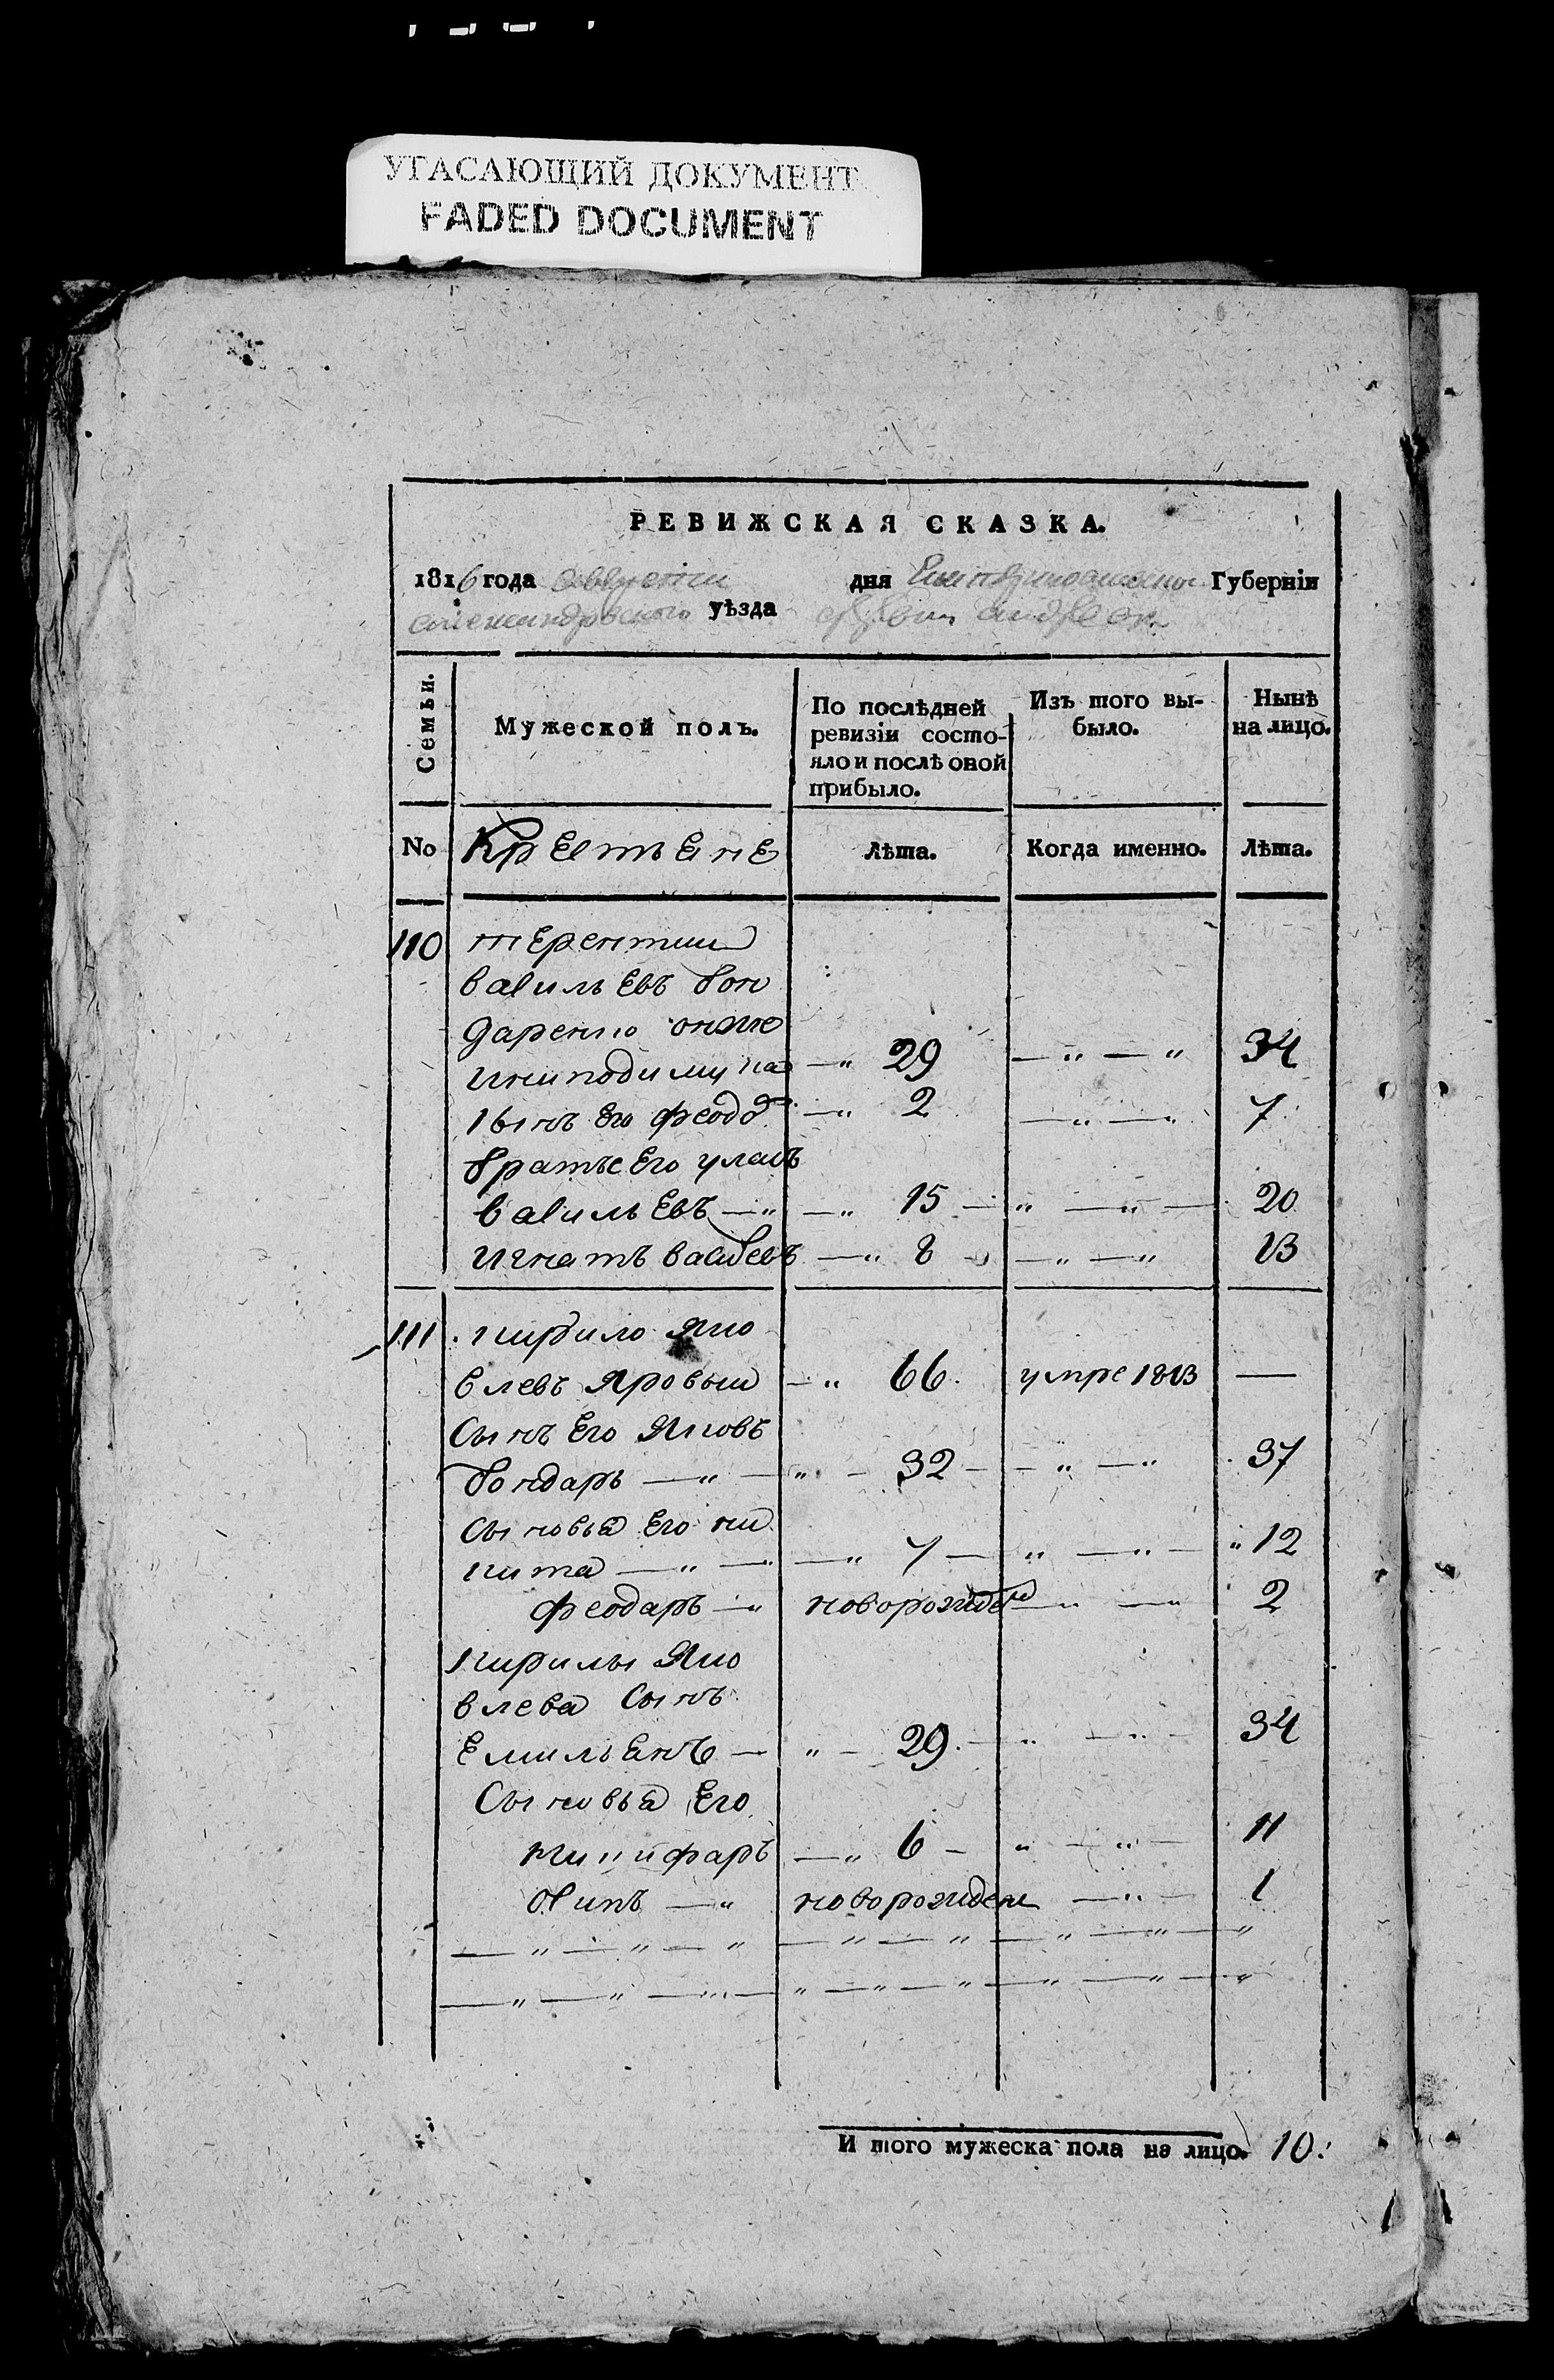 УГАСАЮЩИЙ ДОКУМЕНТ
FADED DOCUMENT
РЕВИЖСКАЯ СКАЗКА.
1816 года дня Губерніи
уѣзда
Семьи.
Мужеской полъ.
По послѣдней ревизіи состояло и послѣ оной прибыло.
Изъ того выбыло.
Нынѣ на лицо.
No Крестьяне Лѣта. Когда именно. Лѣта.
110 терентии
василь Евъ бон
даренко онже
— „ 29 — „ — „ 34
сынъ Его феод — „ 2 — „ — „ 7
братье Его уласъ
василь Евъ — „ — „ 15 — „ — „ — 20
игнатъ васильевъ — „ 8 — „ — „ 13
111 кирило Яко
влевъ Яровыи — „ 66. умре 1813 —
Сынъ Его Яковъ
бондарь — „ — „ — 32 — — „ — „ 37
Сыновья Его ни
кита — „ — „ — „ 7 — „ — „ — „ 12
феодаръ — „ новорожден — „ — „ 2
кирилы Яко
влева Сынъ
Емильянъ — „ — 29. — „ — „ — 34
Сыновья Его
никифаръ — „ 6 — „ — „ — 11
Осипъ — „ новорожден — „ — 1
— „ — „ — „ — „ — „ — „ — „ — „
— „ — „ — „ — „ — „ — „ — „ — „ — „
И того мужеска пола на лицо. 10: